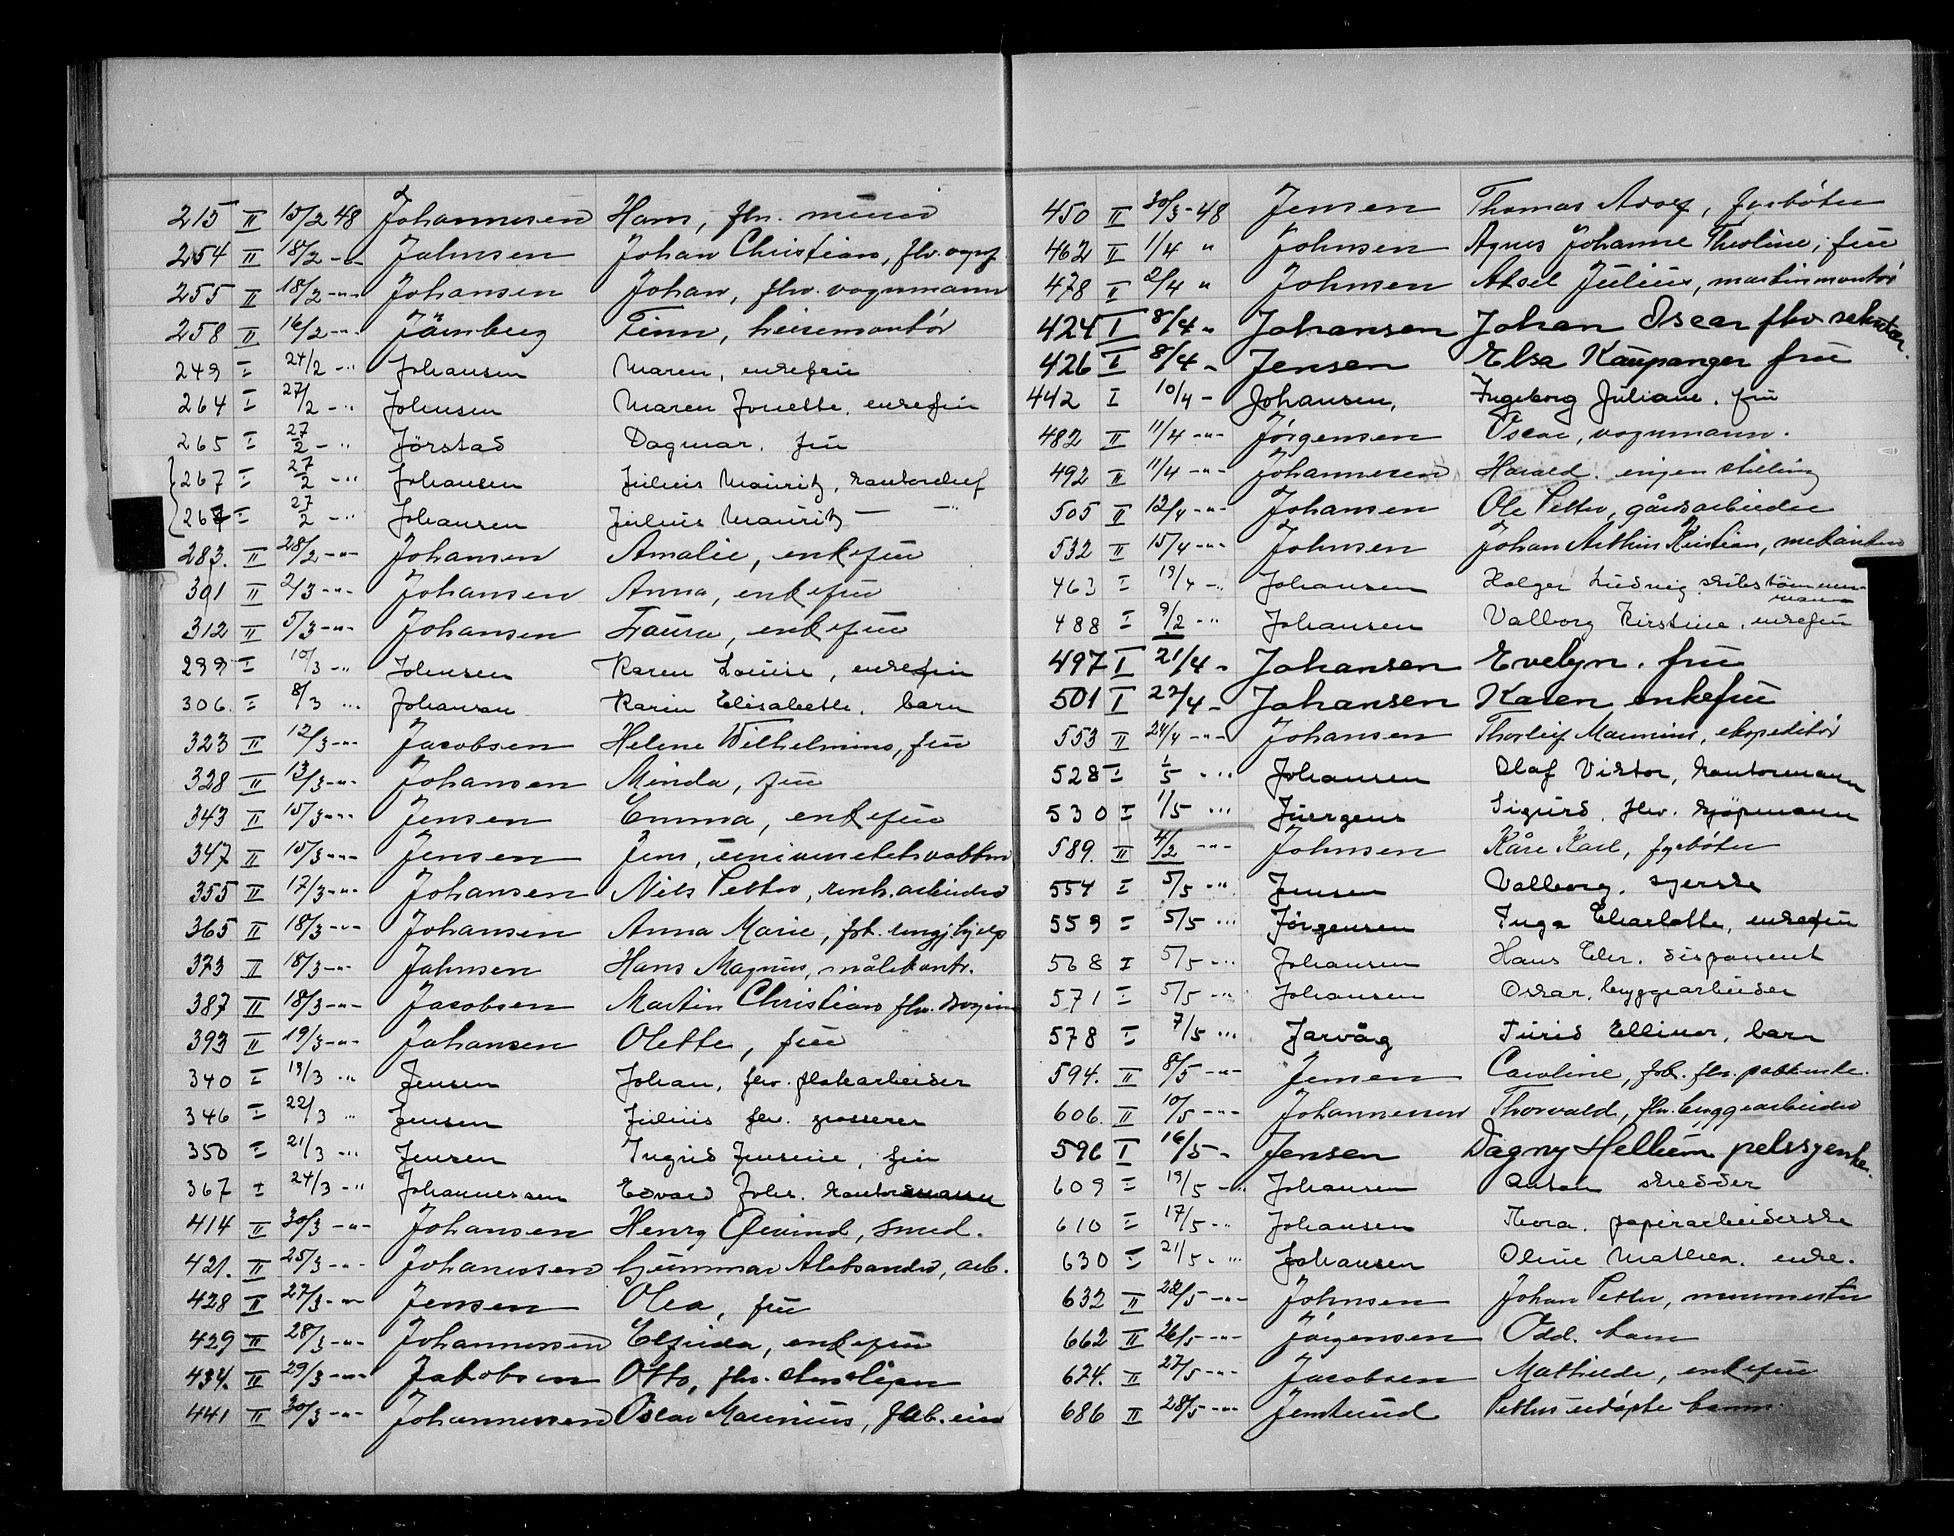 215 II 15/2 48 Johannesen Hans, fhv. murer
254 II 18/2 -"- Johnsen Johan Christian, fhv. vognf.
255 II 18/2 -"- Johansen Johan, fhv. vognmann
258 II 16/2 -"- Järnberg Finn, heisemontör
249 I 24/2 -"- Johansen Maren, enkefru
264 I 27/2 -"- Johnsen Maren Jonette. enkefru
265 I 27/2 -"- Jörstad Dagmar. fru
267 I 27/2 -"- Johansen Julius Mauritz, kontorchef
267 I 27/2 -"- Johansen Julius Mauritz — -"-
283. II 28/2 -"- Johansen Amalie, enkefru
301 II 2/3 -"- Johansen Anna, enkefru
312 II 5/3 -"- Johansen Laura, enkefru
299 I 10/3 -"- Johnsen Karen Louise, enkefru
306. I 8/3 -"- Johansen Karin Elisabeth. barn
323 II 12/3 -"- Jacobsen Helene Wilhelmine, fru
328 II 13/3 -"- Johansen Minda, fru
343 II 15/3 -"- Jensen Emma, enkefru
347 II 15/3 -"- Jensen Jens, universitetsvaktm
355 II 17/3 -"- Johansen Nils Petter, renh.arbeider
365 II 18/3 -"- Johansen Anna Marie, frk. rengj.hjelp
373 II 18/3 -"- Johnsen Hans Magnus, målekontr.
387 II 18/3 -"- Jacobsen Martin Christian fhv.
393 II 19/3 -"- Johansen Olette, fru
340 I 19/3 -"- Jensen Johan, fhv. platearbeider
346 I 22/3 " Jensen Julius fhv. grosserer
350 I 21/3 -"- Jensen Ingrid Jensine, fru
367 I 24/3 -"- Johannessen Edvard Johs. kontormann
414 II 30/3 -"- Johansen Henry Øivind, smed.
421. II 25/3 -"- Johannesen Gunnar Aleksander, arb.
428 II 27/3 -"- Jensen Olea, fru
429 II 28/3 -"- Johannessen Elfrida, enkefru
434. II 29/3 -"- Jakobsen Otto, fhv.
441 II 30/3 -"- Johannessen Oscar Maurinius, fab.eier
450 II 30/3 -48 Jensen Thomas Adolf, fyrbøter
462 II 1/4 " Johnsen Agnes Johanne Theoline, fru
478 II 2/4 " Johnsen Aksel Julius, maskinmontör
424 I 8/4 " Johansen Johan Oscar fhv sekretær.
426 I 8/4 - Jensen Elsa Kaupanger fru
442 I 10/4 - Johansen, Ingeborg Juliane. fru
482 II 11/4 -"- Jörgensen Oscar, vognmann.
492 II 11/4 -"- Johannesen Harald. ingen stilling
505 II 12/4 -"- Johansen Ole Petter, gårdsarbeider
532 II 15/4 -"- Johnsen Johan Arthur Kristian, mekaniker
463 I 19/4 -"- Johansen Holger Ludvig. skibstömmermann
488 I 9/2 -"- Johansen Valborg Kirstine. enkefru
497 I 21/4 - Johansen Evelyn. fru
501 I 22/4 - Johansen Karen enkefru
553 II 24/4 -"- Johansen Thorleif Maurinius, ekspeditör
528 I 1/5 -"- Johansen Olaf Viktor, kontormann
530 I 1/5 -"- Juergens Sigurd. fhv. kjøpmann
589. II 4/2 -"- Johnsen Kåre Karl, fyrbøter
554 I 5/5 -"- Jensen Valborg. syerske
559 I 5/5 -"- Jörgensen Inga Charlotte, enkefru
568 I 5/5 -"- Johansen Hans Eler. disponent
571 I 5/5 -"- Johansen Oskar. byggearbeider
578 I 7/5 -"- Jarvåg Turid Ellinor, barn
594. II 8/5 -"- Jensen Caroline, frk. fhv. pakkerske.
606. II 10/5 -"- Johannessen Thorvald, fhv. byggearbeider
596 I 16/5 - Jensen Dagny Hellum pelssyerske.
609 I 19/5 -"- Johansen Anton skredder
610 I 17/5 -"- Johansen Thora. papirarbeiderske
630 I 21/5 -"- Johansen Oline Mathea. enke.
632 II 22/5 -"- Johnsen Johan Petter, murmester
662 II 26/5 -"- Jörgensen Odd. barn
674. II 27/5 -"- Jacobsen Mathilde, enkefru
686 II 28/5 -"- Jemtrud Petters udøpte barn.